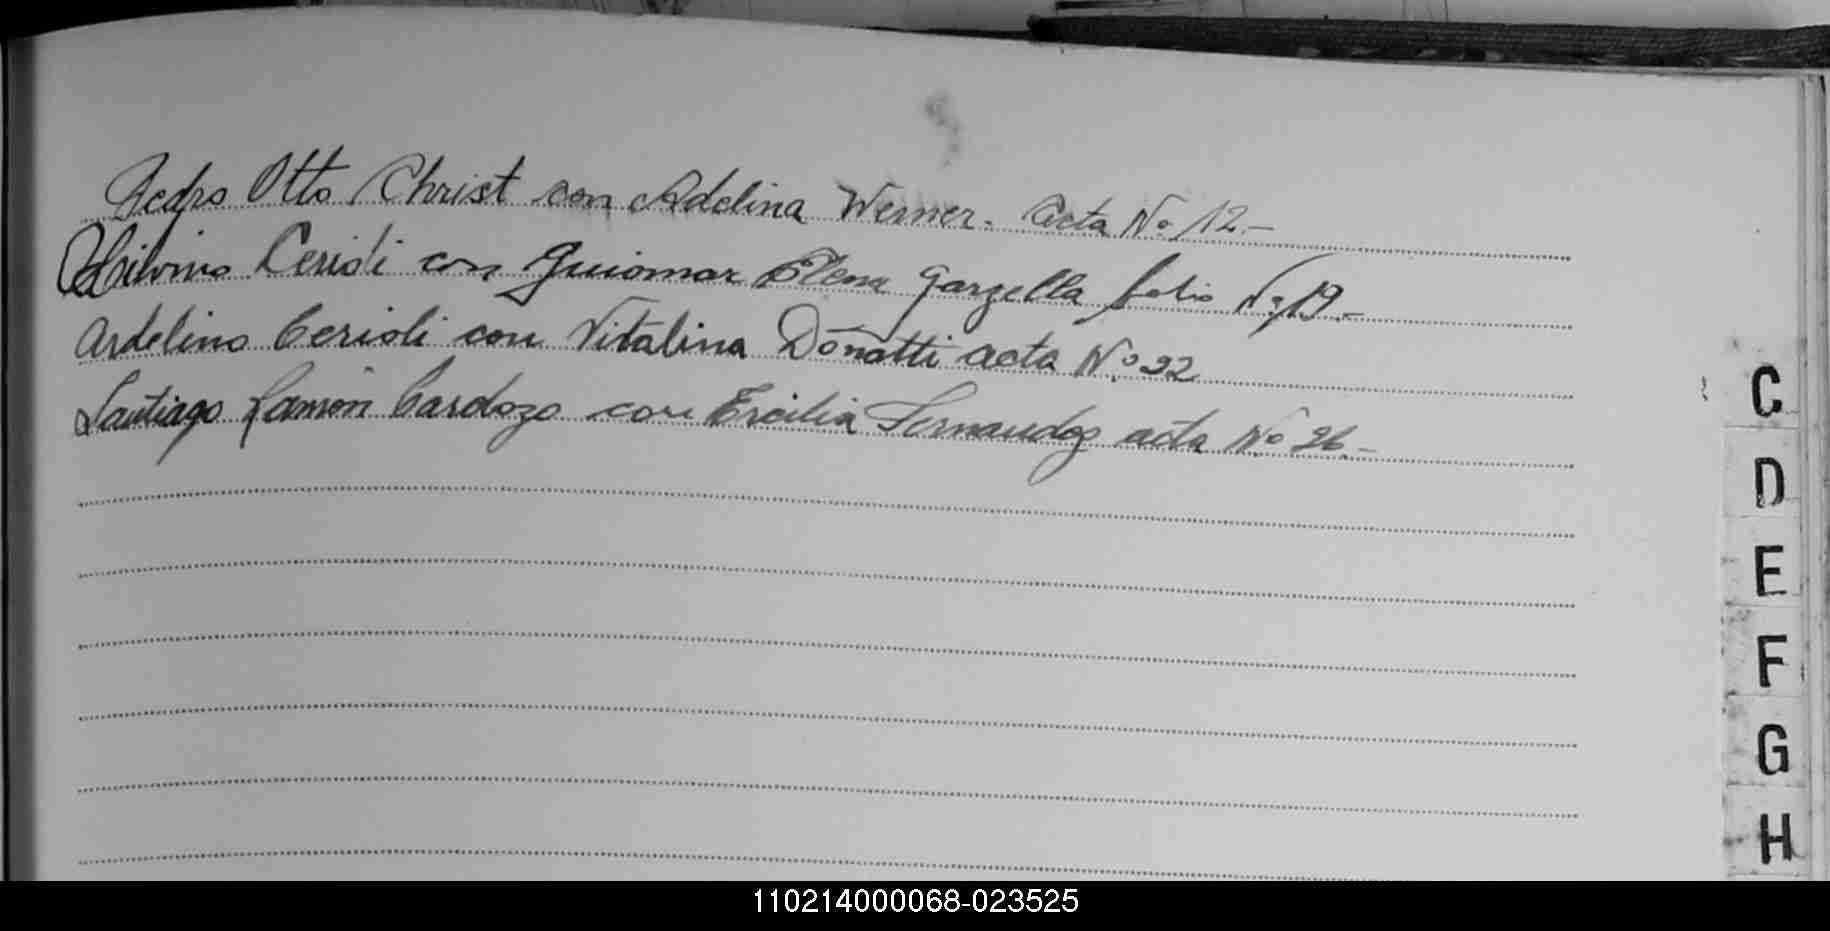 Pedro Otto Christ con Adelina Werner. acta No 12.-
Hilvino Cerioli con Guiomar Elena Garzella folio No 19.-
Ardelino Cerioli con Vitalina Donatti acta No 22
Santiago Ramón Cardozo con Ercilia Fernandez acta No 26.-
C
D
E
F
G
H
110214000068-023525